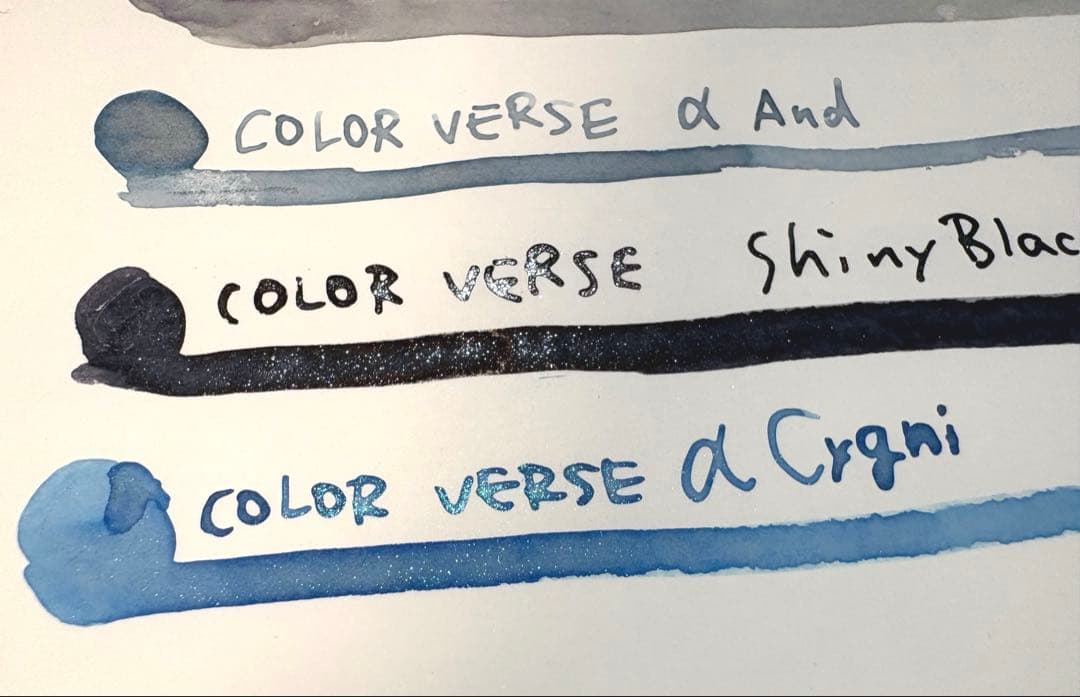 COLOR VERSE α And
COLOR VERSE Shiny Blac
COLOR VERSE α Cygni